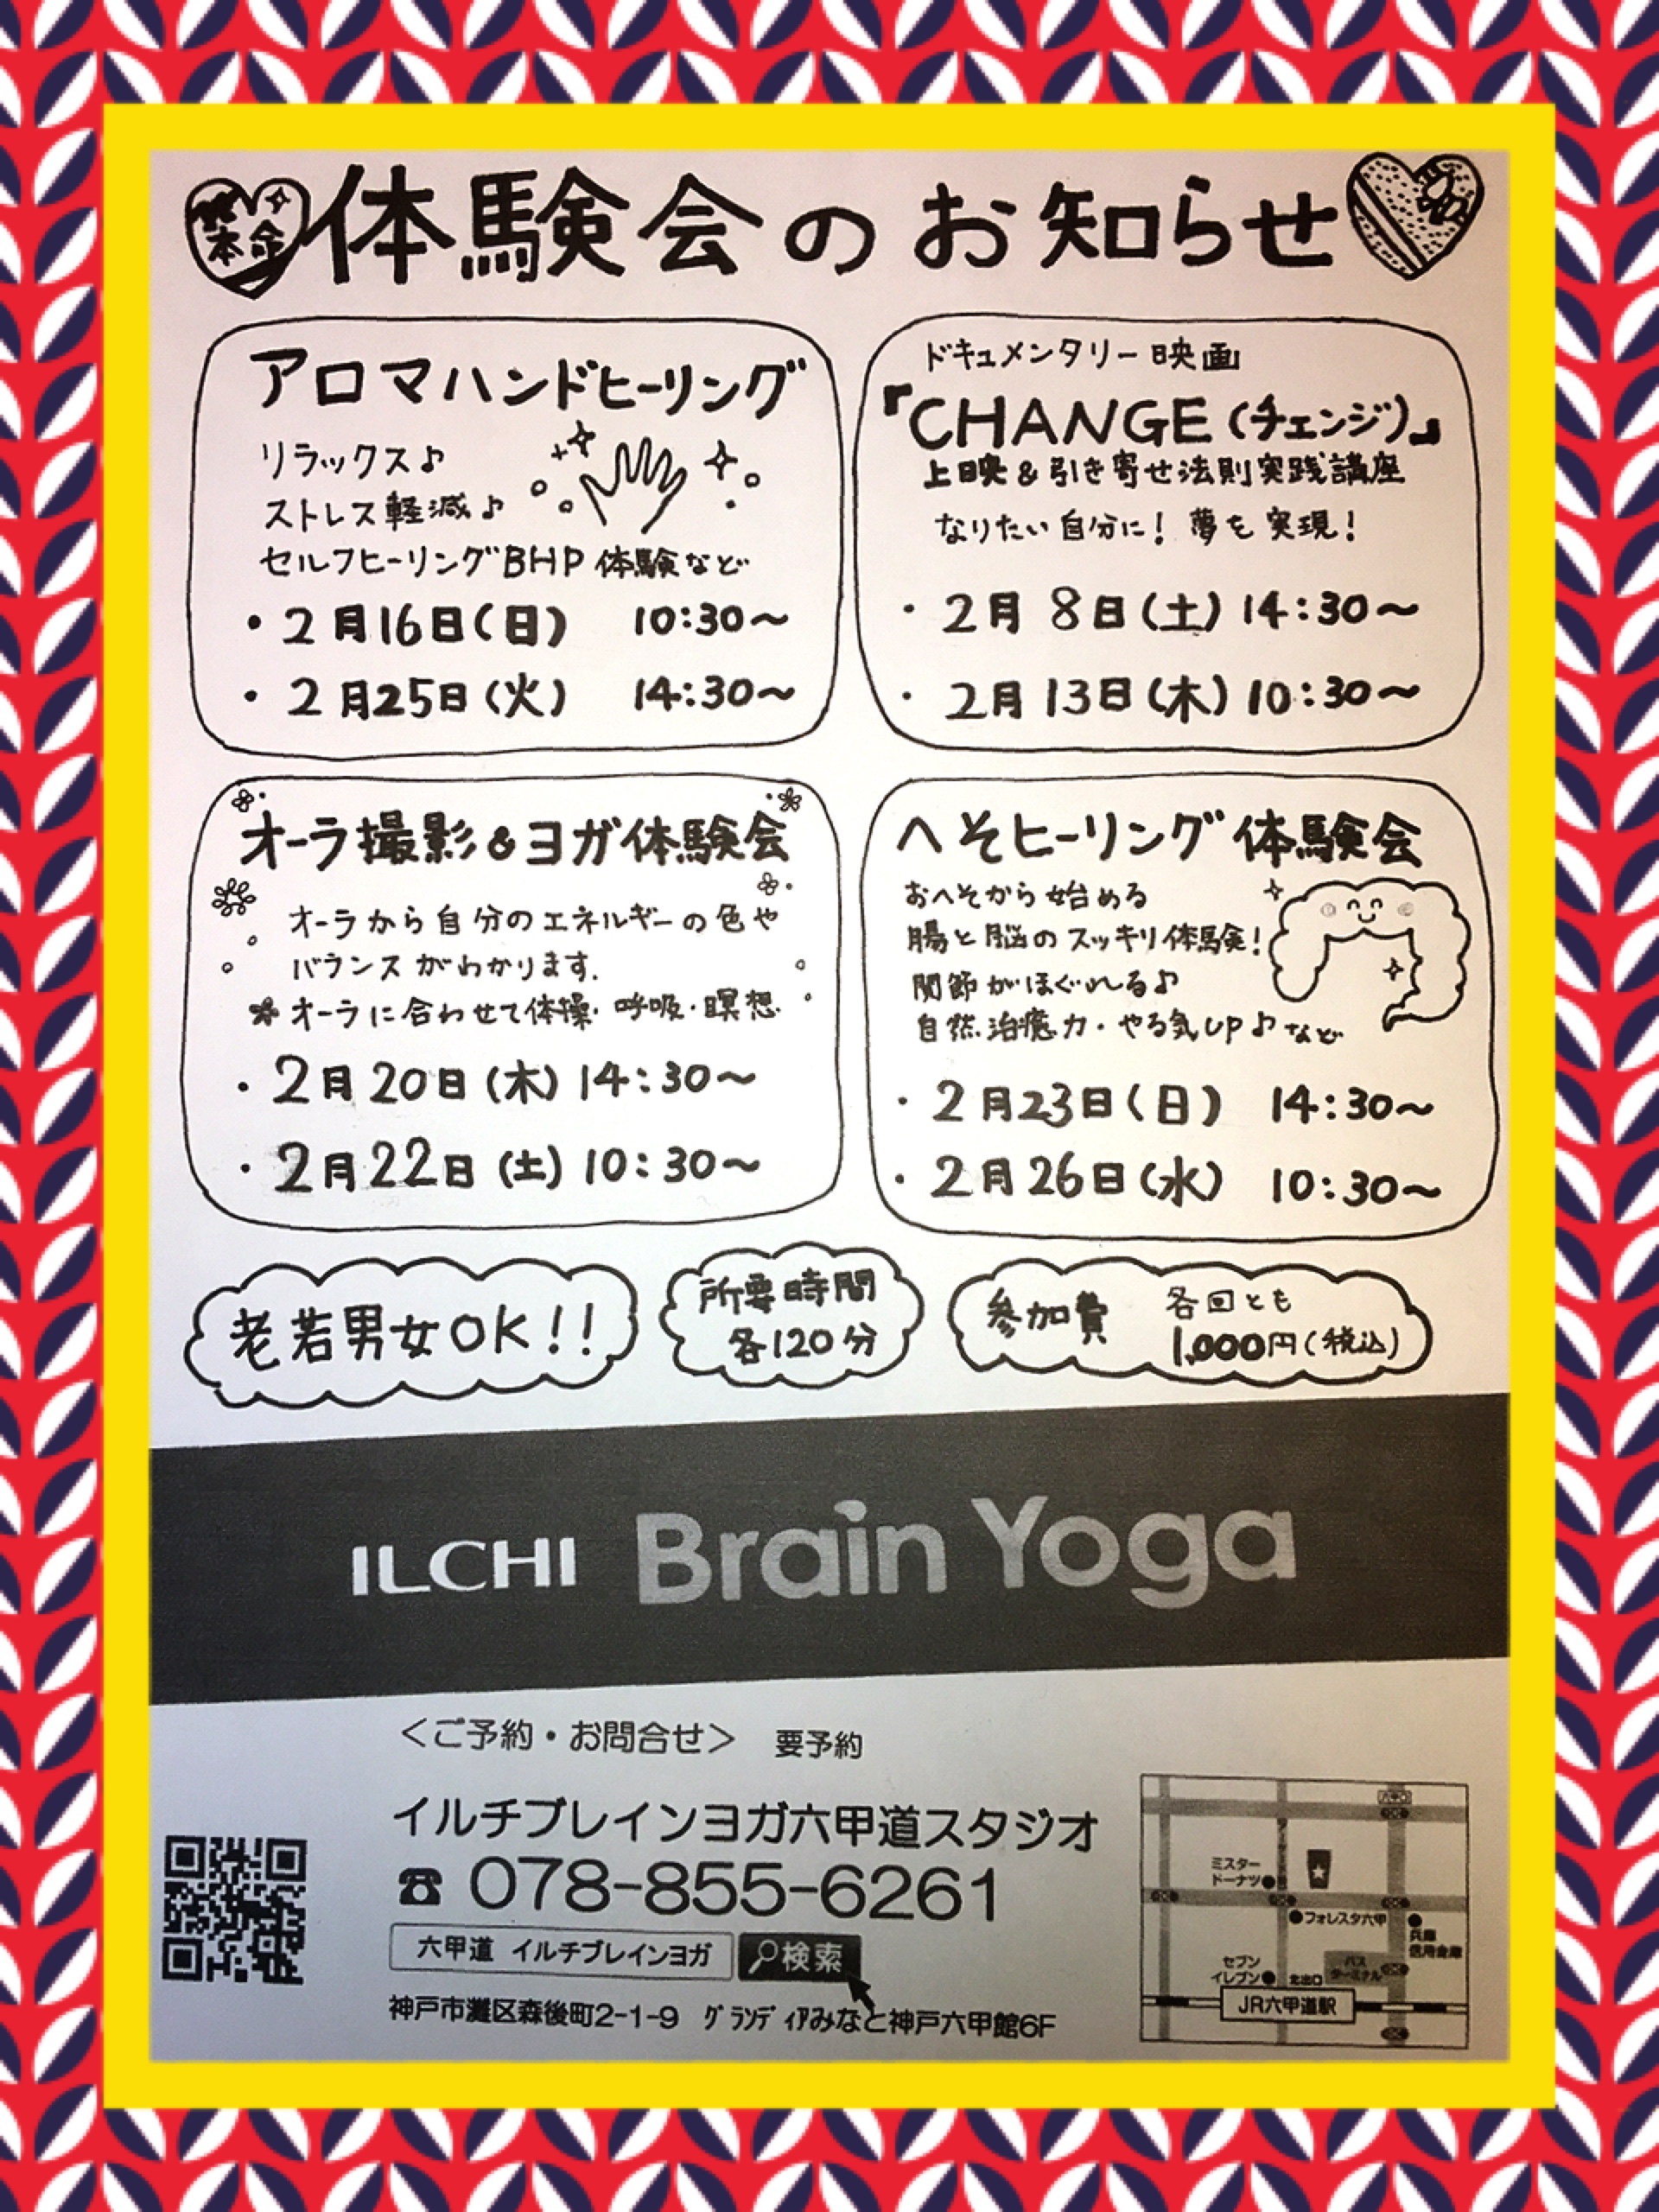 本命
体験会のお知らせ
アロマハンドヒーリング
リラックス♪
ストレス軽減♪
セルフヒーリングBHP体験など
・2月16日(日) 10:30～
・2月25日(火) 14:30～
ドキュメンタリー映画
『CHANGE(チェンジ)』
上映&引き寄せ法則実践講座
なりたい自分に！夢を実現！
・2月8日(土) 14:30～
・2月13日(木) 10:30～
オーラ撮影&ヨガ体験会
オーラから自分のエネルギーの色や
バランスがわかります.
オーラに合わせて体操・呼吸・瞑想
・2月20日(木) 14:30～
・2月22日(土) 10:30～
へそヒーリング体験会
おへそから始める
腸と脳のスッキリ体験！
関節がほぐれる♪
自然治癒力・やる気UP♪など
・2月23日(日) 14:30～
・2月26日(水) 10:30～
老若男女OK!!
所要時間
各120分
参加費 各回とも
1,000円(税込)
ILCHI Brain Yoga
＜ご予約・お問合せ＞ 要予約
イルチブレインヨガ六甲道スタジオ
☎ 078-855-6261
六甲道 イルチブレインヨガ 検索
神戸市灘区森後町2-1-9 ｸﾞﾗﾝﾃﾞｨｱみなと神戸六甲館6F
ミスター
ドーナツ
フォレスタ六甲
兵庫
信用金庫
セブン
イレブン
北出口
バス
ターミナル
JR六甲道駅